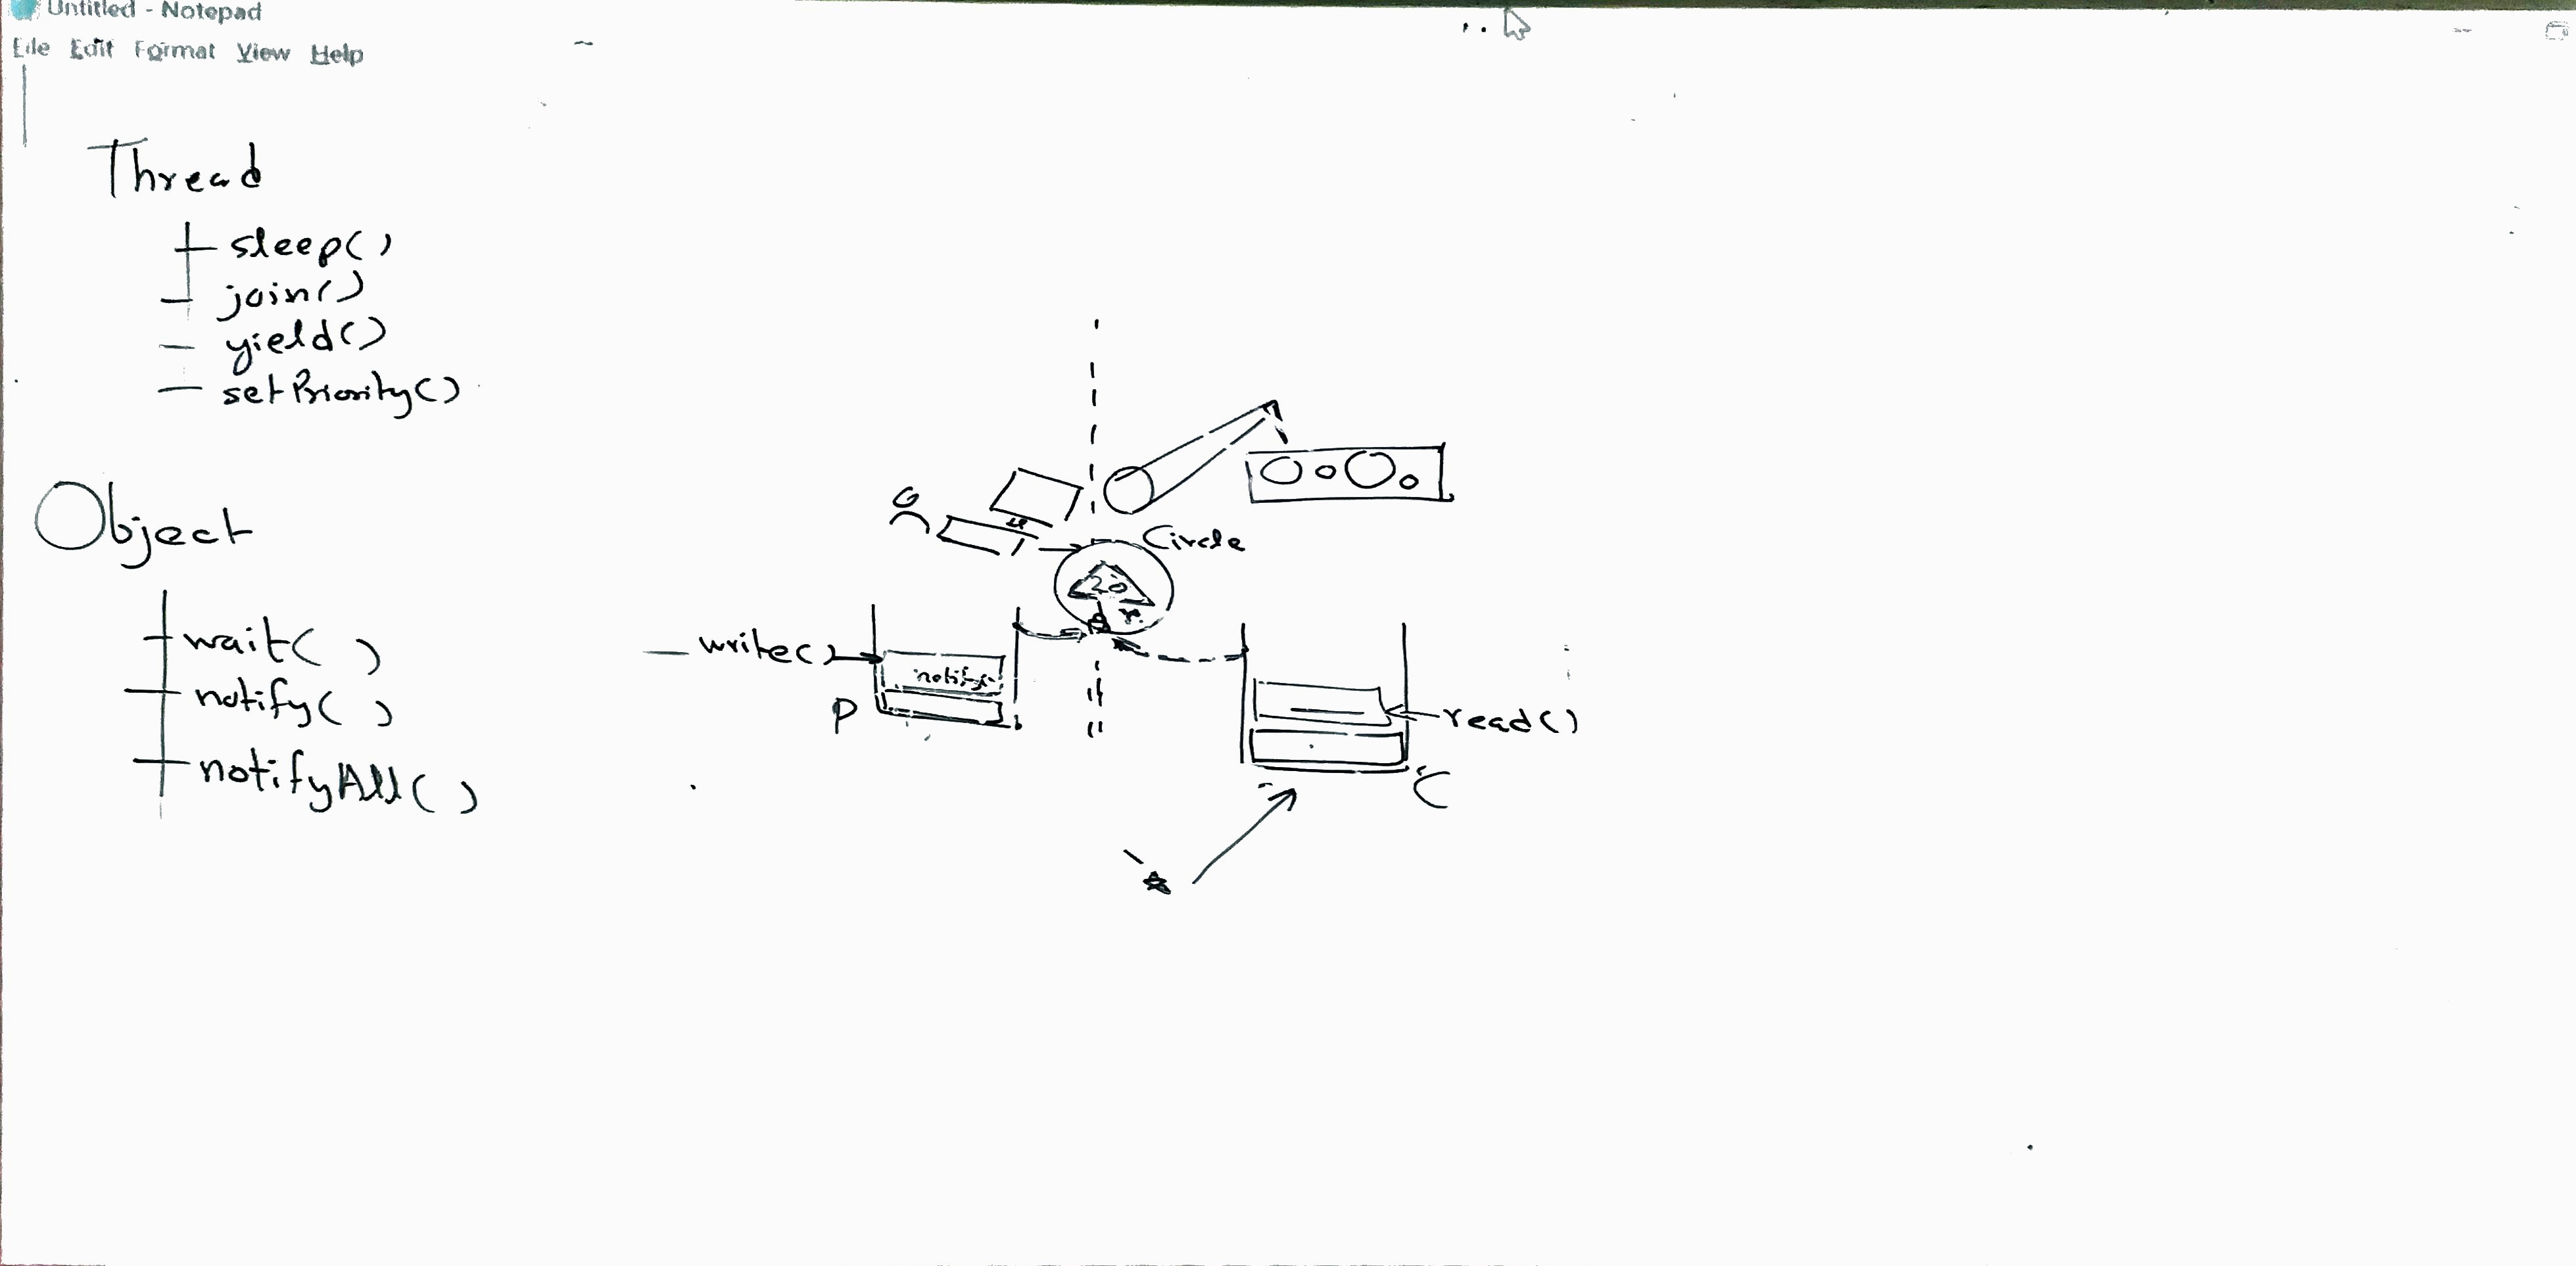 Untitled - Notepad
File Edit Format View Help
Thread
sleep()
join()
yield()
setPriority()
Object
wait( )
notify( )
notifyAll( )
Circle
20
r
write()
notify
P
read()
C